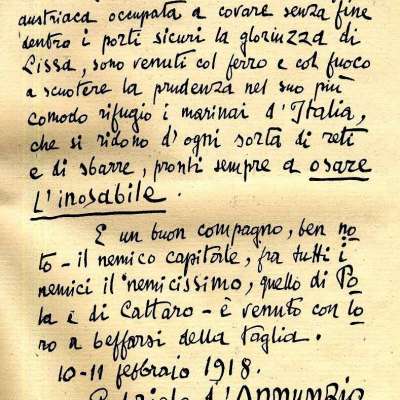 austriaca occupata a covare senza fine
dentro i porti sicuri la gloriuzza di
Lissa, sono venuti col ferro e col fuoco
a scuotere la prudenza nel suo più
comodo rifugio i marinai d'Italia,
che si ridono d'ogni sorta di reti
e di sbarre, pronti sempre a osare
l'inosabile.
E un buon compagno, ben no-
to - il nemico capitale, fra tutti i
nemici il nemicissimo, quello di Po-
la e di Cattaro - è venuto con lo-
ro a beffarsi della taglia.
10-11 febbraio 1918.
Gabriele d'Annunzio